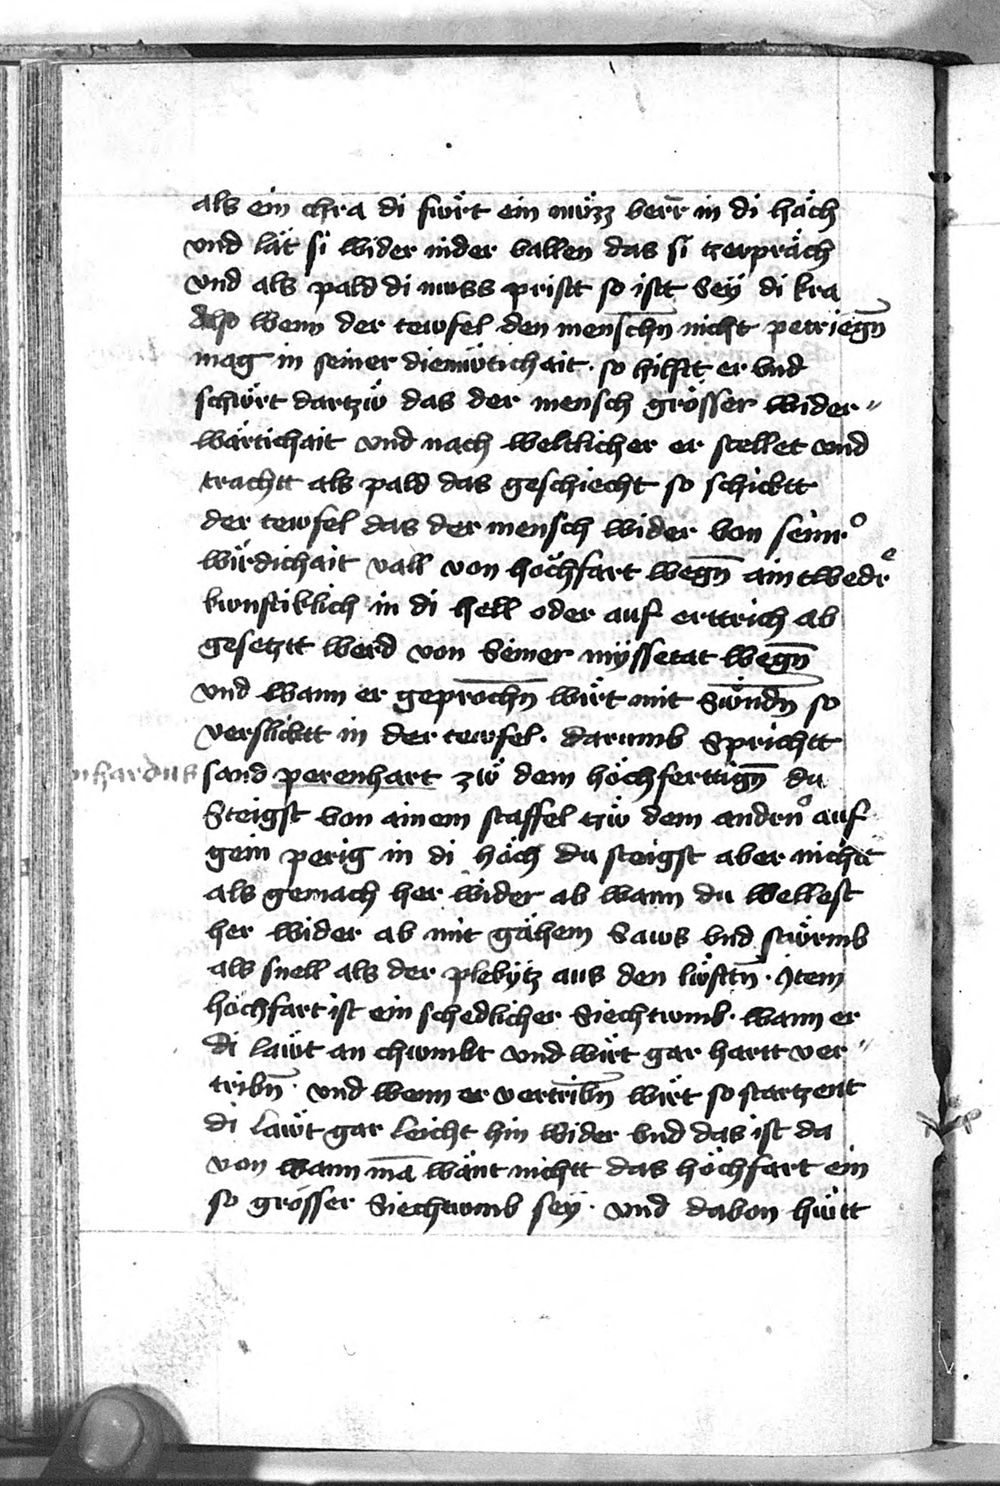 als ein chra di fwͤrt ein nwͤzz verr̄ in di hoͤch
vnd lät si wider nider vallen das si tzerpräch
vnd als pald di nuss pristt so istt Sey di kra
Also wenn der tewfel den menschn̄ nicht petriegn̄
mag in seiner diemwͤtichait · so hilfft er vnd
schwͤrt dartzwͤ das der mensch grösser wider〃
wärtichait vnd nach weltlicher er stellet vnd
trachtt als pald das geschiecht so schicktt
der tewfel das der mensch wider von seinr̊
wirdichait vall von hochfart wegn̄ aintwedrͤ
kwnstiklich in di hell oder auf erttrich ab
gesetztt werd von Seiner myssetat wegn̄
vnd wann er geprochn̄ wirt mit Swͤndn̄ so
verslicktt in der tewfel · darumb Sprichtt
nhardus sand perenhart zwͤ dem höchferttign̄ du
Steigst von ainem staffel tzwͤ dem andrn̊ auf
gein perig in di höch du steigst aber nichtt
als gemach her wider ab wann du wellest
her wider ab mit gähem Saws vnd stwͤrmb
als snell als der plekytz aus den lwͤfttn̄ · Item
höchfart ist ein schedlicher Siechtwmb · wann er
di läwt an chwmbt vnd wirt gar hartt ver〃
tribn̄ · vnd wenn er vertribn̄ wirt so startzent
di läwt gar leicht hin wider vnd das ist da
von wann mā wänt nichtt das höchfart ein
so grösser Siechtwmb sey · vnd davon hwͤtt